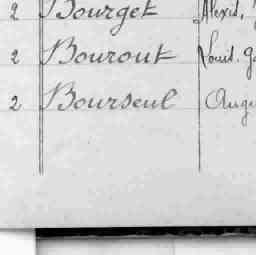 2 Bourget Alexid,
2 Bourout Louis. Ga
2 Bourseul Augu